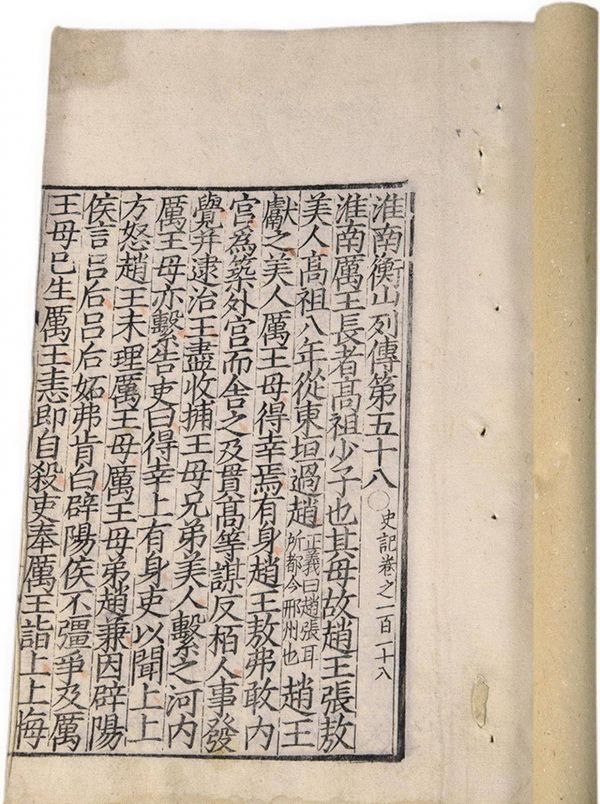 淮南衡山列傳第五十八○史記卷之一百一十八
淮南厲王長者髙祖少子也其母故趙王張敖
美人髙祖八年從東垣過趙正義曰趙張耳所都今邢州也趙王
獻之美人厲王母得幸焉有身趙王敖弗敢內
宮爲築外宮而舍之及貫髙等謀反栢人事發
覺并逮治王盡收捕王母兄弟美人繫之河內
厲王母亦繫告吏曰得幸上有身吏以聞上上
方怒趙王未理厲王母厲王母弟趙兼因辟陽
侯言呂后呂后妬弗肯白辟陽侯不彊爭及厲
王母已生厲王恚即自殺吏奉厲王詣上上悔